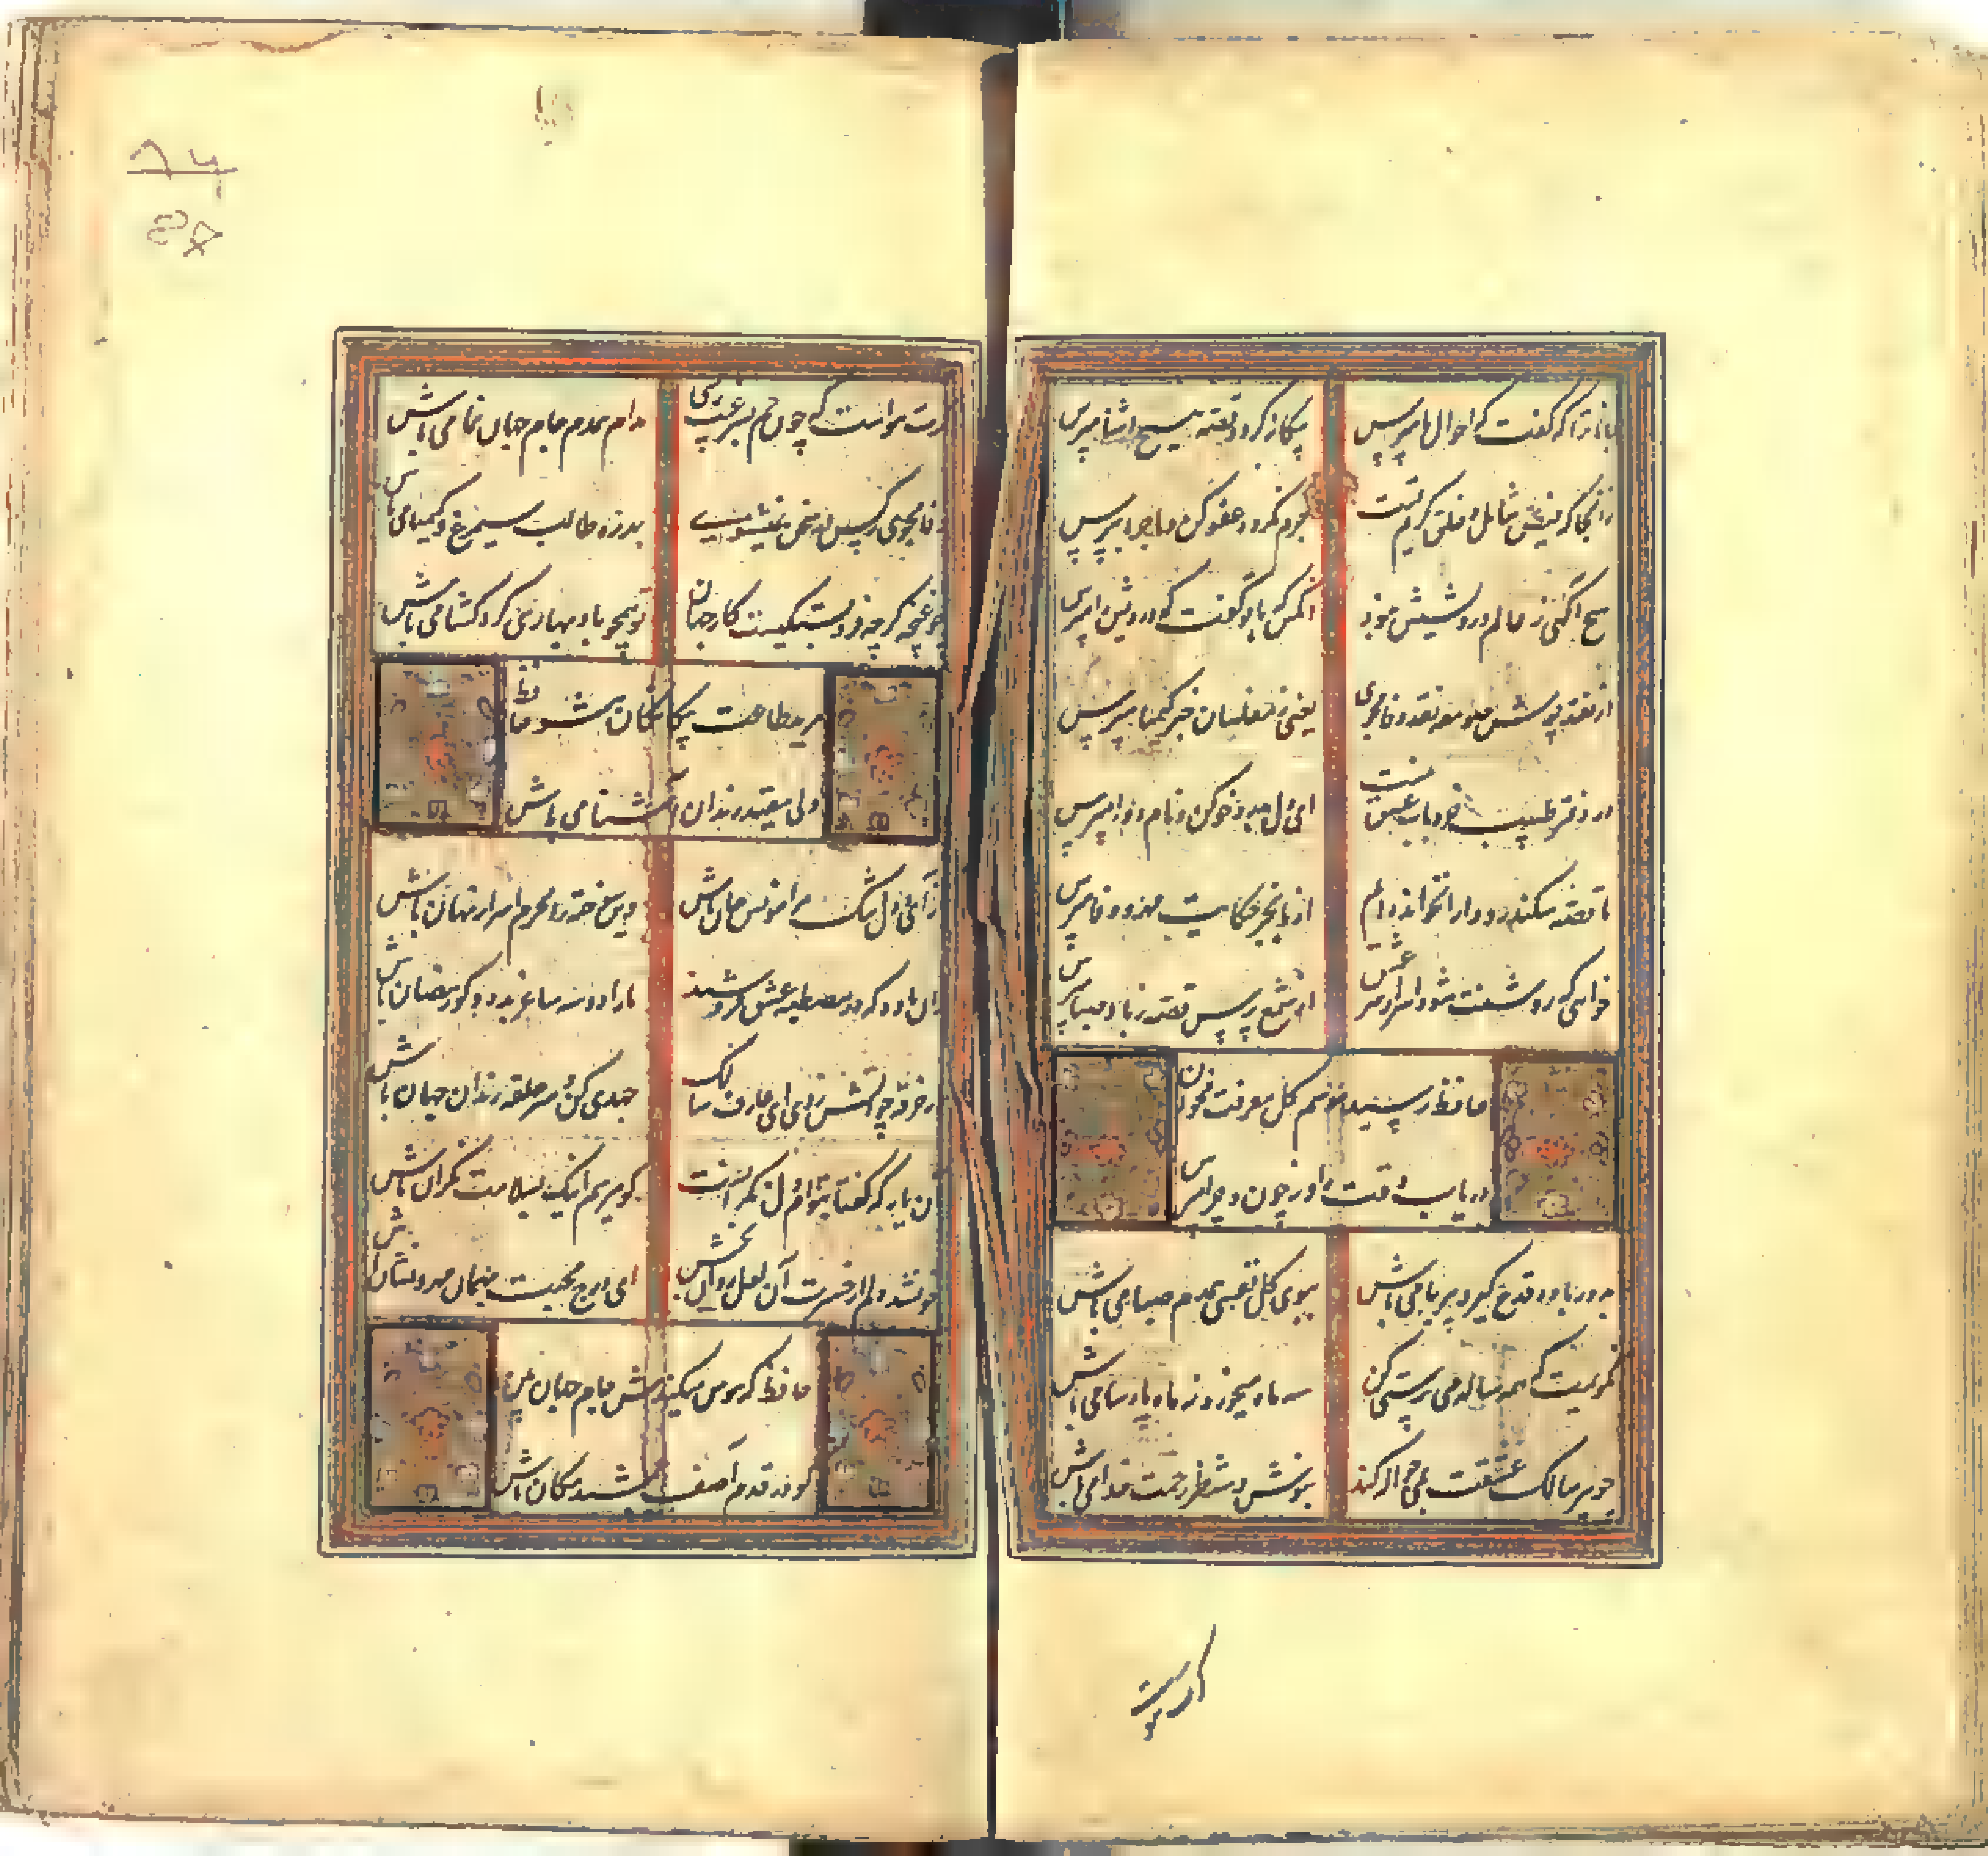 جانا ترا که گفت که احوال ما مپرس
بیگانه گرد و قصه هیچ آشنا مپرس
زانجا که فیض شامل و خلق کریم تست
جرم نکرده عفو کن و ماجرا مپرس
هیچ آگهی ز عالم درویشیش نبود
آنکس که با تو گفت که درویش را مپرس
از دلق پوش صومعه نقد وفا مجوی
یعنی ز مفلسان خبر کیمیا مپرس
در دفتر طبیب خرد باب عشق نیست
ای دل بدرد خو کن و نام دوا مپرس
ما قصه سکندر و دارا نخوانده‌ایم
از ما بجز حکایت مهر و وفا مپرس
خواهی که روشنت شود اسرار عشق
از شمع پرس قصه ز باد صبا مپرس
حافظ رسید موسم گل معرفت مخوان
دریاب وقت را و ز چون و چرا مپرس
بدور باده قدح گیر و بیریا می‌باش
ببوی گل نفسی همدم صبا می‌باش
نگویمت که همه ساله می پرستی کن
سه ماه میخور و نه ماه پارسا می‌باش
چو پیر سالک عشقت بمی حواله کند
بنوش و منتظر رحمت خدا می‌باش
گرت هواست
گرت هواست که چون جم بسر غیب رسی
مدام همدم جام جهان نما می‌باش
وفا مجوی ز کس ور سخن نمیشنوی
بهرزه طالب سیمرغ و کیمیا می‌باش
چو غنچه گرچه فروبستگیست کار جهان
تو همچو باد بهاری گره گشا می‌باش
مرید طاعت بیگانگان مشو حافظ
ولی مقید رندان آشنا می‌باش
ای دل مرا مونس جان باش
وین سوخته را محرم اسرار نهان باش
زان باده که در مصطبه عشق فروشند
ما را دو سه ساغر بده و گو رمضان باش
در خرقه چو آتش زدی ای عارف سالک
جهدی کن و سر حلقه رندان جهان باش
آن یار که گفتا بتوام دل نگرانست
گو میرسم اینک بسلامت نگران باش
خون شد دلم از حسرت آن لعل روان بخش
ای درج محبت بهمان مهر و نشان باش
حافظ که هوس میکندش جام جهان بین
گو در قدم آصف جمشید مکان باش